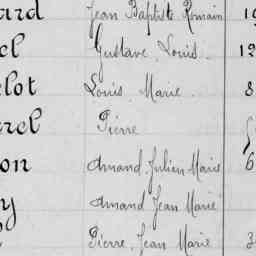 ard Jean Baptiste Romain 19
el Gustave, Louis. 12
elot Louis, Marie. 8
rel Pierre
on Amand, Julien Marie 6
y Amand Jean Marie
Pierre, Jean Marie 3